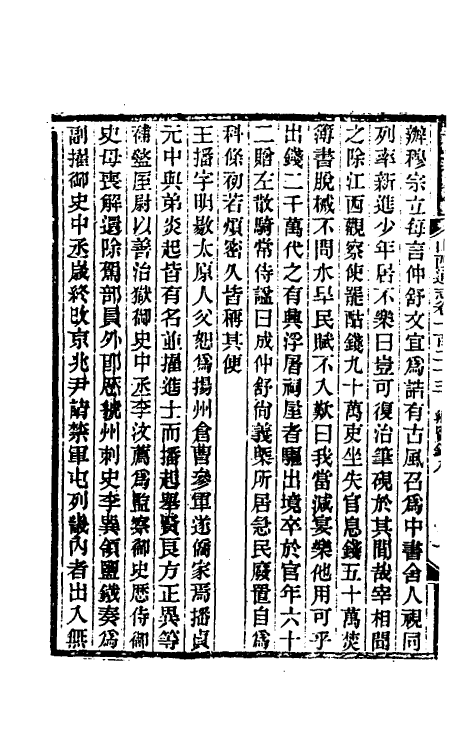 辦穆宗立每言仲舒文宜爲誥有古風召爲中書舍人視同
列率新進少年居不樂曰豈可復治筆硯於其間哉宰相聞
之除江西觀察使罷酤錢九十萬吏坐失官息錢五十萬焚
簿書脫械不問水旱民賦不入歎曰我當減宴樂他用可乎
出錢二千萬代之有與浮屠祠屋者驅出境卒於官年六十
二贈左散騎常侍諡曰成仲舒尙義槩所居急民廢置自爲
科條初若煩密久皆稱其便
王播字明敭太原人父恕爲揚州倉曹參軍遂僑家焉播貞
元中與弟炎起皆有名並擢進士而播起舉賢良方正異等
補盩厔尉以善治獄御史中丞李汶薦爲監察御史歷侍御
史母喪解還除駕部員外郎歷虢州刺史李巽領鹽鐵奏爲
副擢御史中丞歲終改京兆尹諸禁軍屯列畿內者出入無
山西通志卷一百二十三 鄉賢錄八